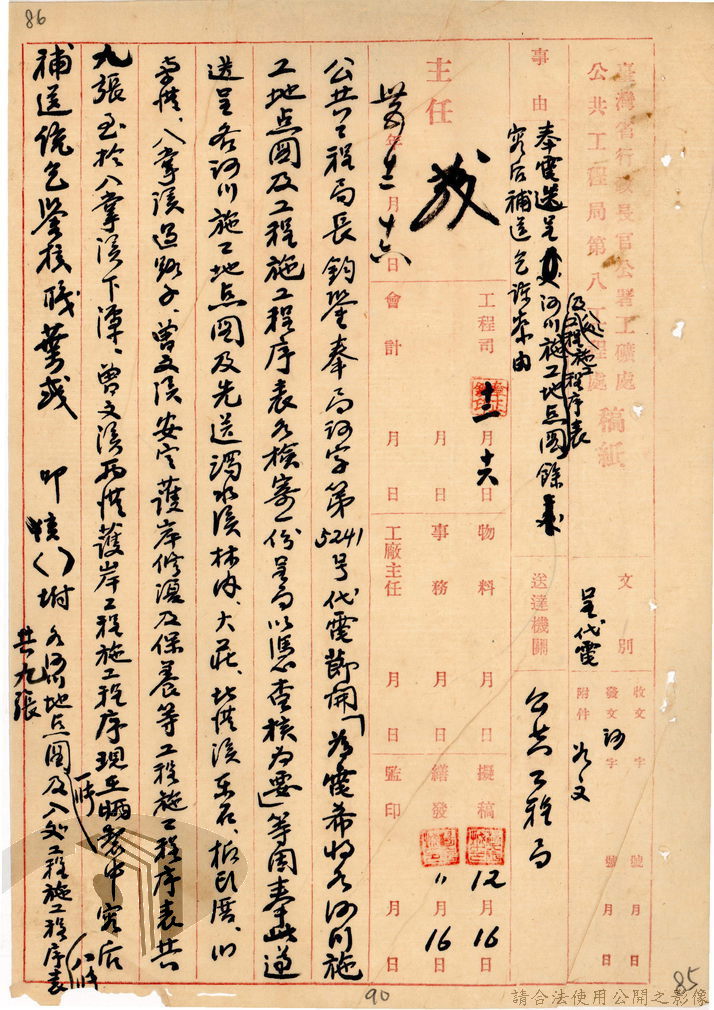 86
臺灣省行政長官公署工礦處
公共工程局第八工程處 稿紙
文別
呈代電
收文 字 號 月 日
發文 字 號 月 日
附件
送達機關
公共工程局
事由
奉電送呈 河川施工地点圖 及工程施工程序表 餘
容后補送乞詧察由
主任
卅五年十二月十六日
工程司 十二月十六日
會計 月 日
物料 月 日
事務 月 日
工廠主任 月 日
擬稿 12月16日
繕發 〃月16日
監印 月 日
公共工程局長鈞鑒奉局河字第5241号代電節開「為電希將各河川施
工地点圖及工程施工程序表各檢寄一份呈局以憑查核为要」等因奉此遵
送呈各河川施工地点圖及先送濁水溪林內、大莊、北港溪東石、板頭厝、
八掌溪 曾文溪安定護岸修復及保養等工程施工程序表共
九張至於八掌溪下潭、曾文溪西港護岸工程施工程序現正晒製中容后
補送統乞鑒核職葉 叩 附各河川地点圖及八处工程施工程序表
共九張
90
85
請合法使用公開之影像